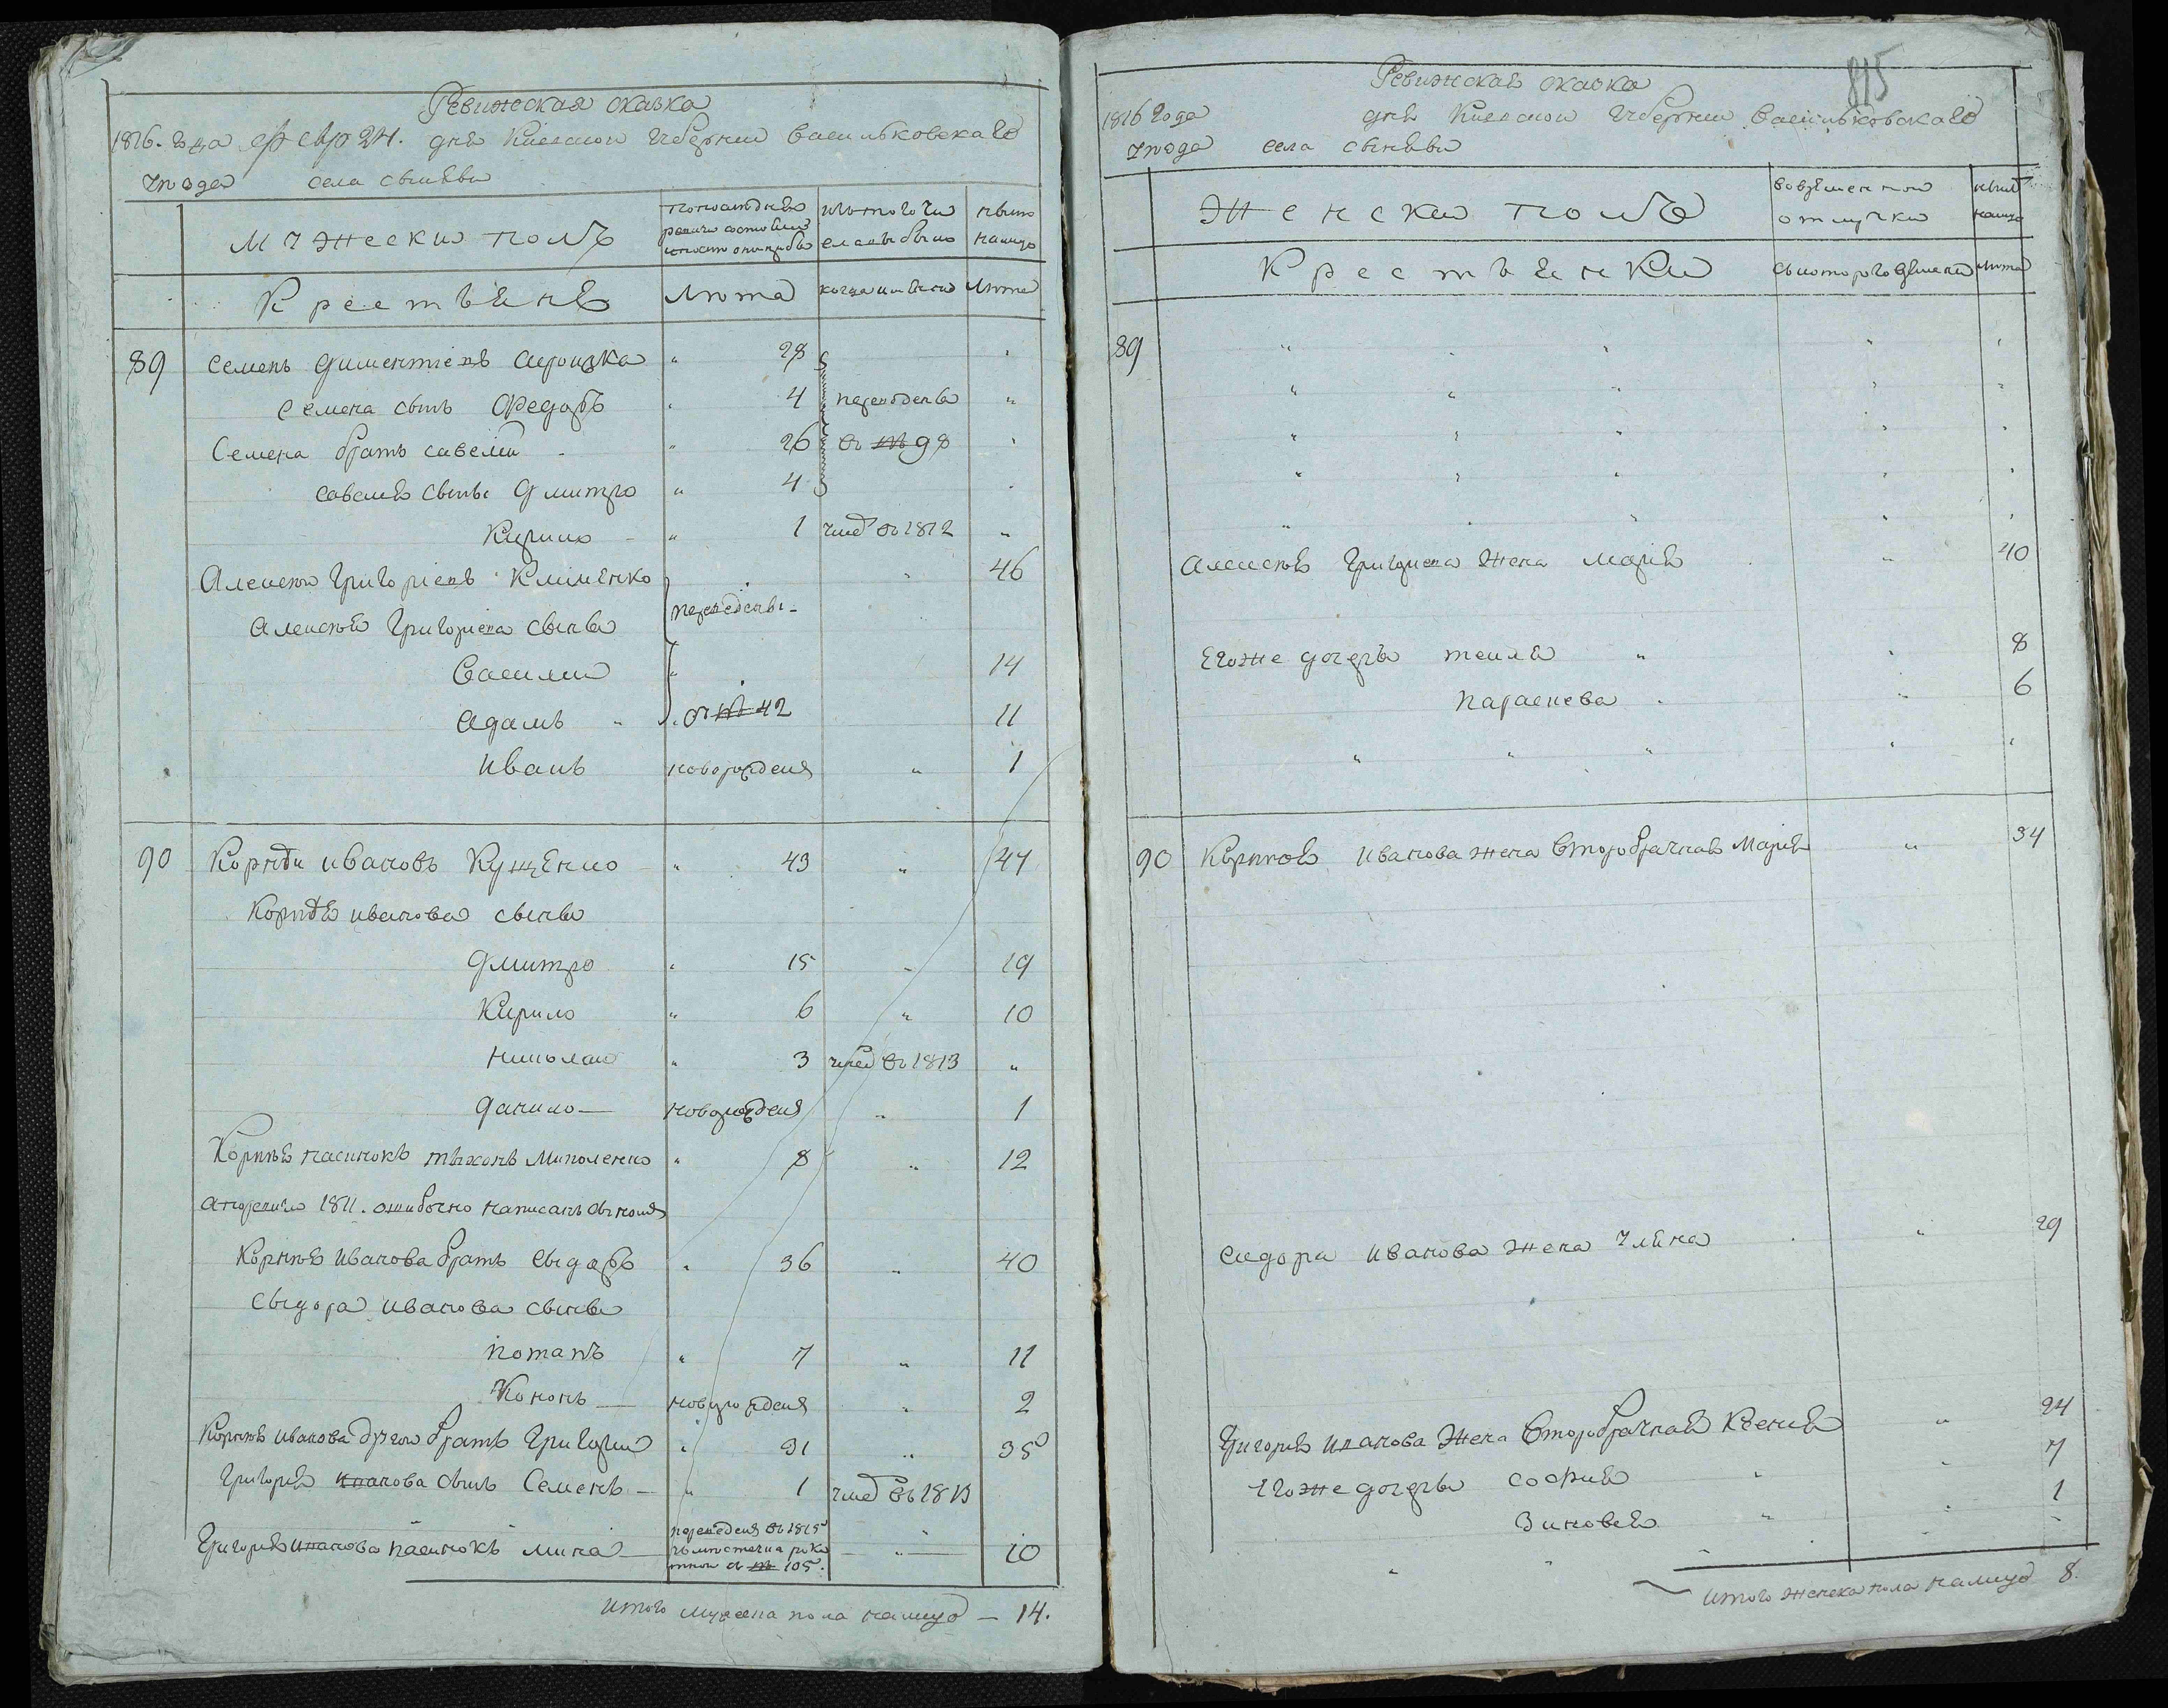 Ревижская сказка
1816. года февр 24. дня Киевской губернии васильковскаго
уезда села сынявы
мужески полъ
по последней
ревизии состояло
исъ того числа
выбыло
ныне
налицо
Крестьяне
лѣта
когда имянно
лѣта
89 Семенъ Диментіевъ " 28
Семена сынъ Федоръ " 4 переведены "
Семена братъ савелий " 26 въ № 98 "
савелия сынъ Дмитро " 4
Кирило - " 1 умер въ 1812 "
Алексей Григоріевъ Кліменко " 46
Алексея Григориева сыны переведены
Василий " 14
Адамъ " съ № 42 11
Иванъ новорожденъ " 1
90 Корней ивановъ Кущенко " 43 " 47
Корнея иванова сыны
Дмитро " 15 " 19
Кирило " 6 " 10
николай " 3 умер въ 1813 "
данило новорожденъ " 1
Корнея пасинокъ тихонъ Миколенко " 8 " 12
а по ревизии 1811. ошибочно написанъ
Корнея Иванова братъ сыдоръ " 36 " 40
Сыдора иванова сыны
потапъ " 7 " 11
Кононъ новорожденъ " 2
Корнея иванова другой братъ Григорий " 31 " 35
Григорея иванова сынъ Семенъ " 1 умер въ 1813
Григорея иванова пасинокъ мина переведенъ въ 1815
съ № 105. " 10
Итого мужеска пола налицо — 14.
815
Ревижская сказка
1816 года дня Киевской губернии васильковскаго
уезда села сынявы
Женски полъ
во временной
отлучке
ныне
налицо
Крестьянки
съ котораго времени
лѣта
89
алексея Григориева жена мария " 40
Егоже дочеры текля " " 8
параскева " 6
90 Корнея иванова жена второбрачная Мария " 34
сидора иванова жена уляна " 29
Григорея иванова жена второбрачная Ксения " 24
Егоже дочеры софия " " 7
Зиновея " " 1
Итого женска пола налицо 8.